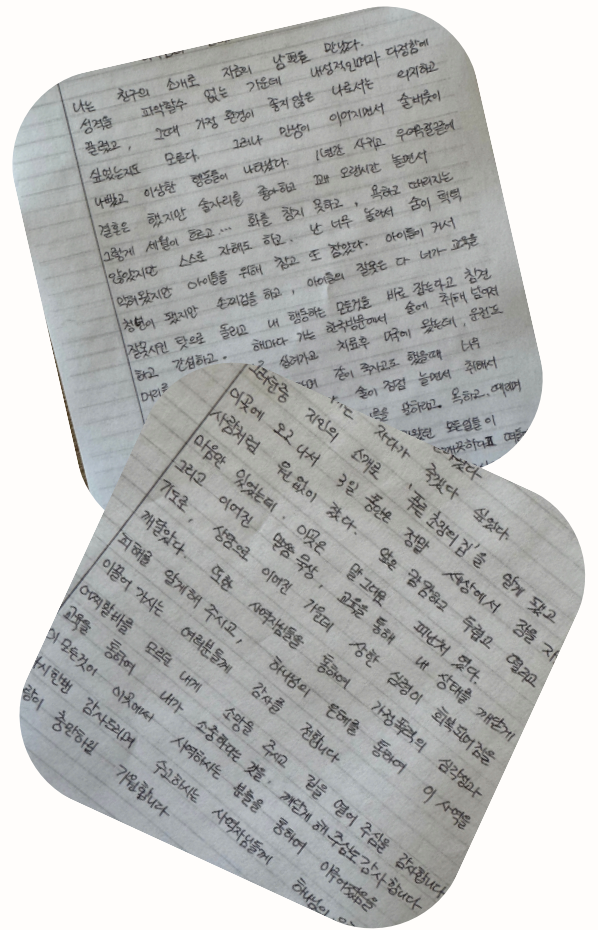 나는 친구의 소개로 지금의 남편을 만났다.
성격을 파악할수 없는 가운데 내성적인면과 다정함에
끌렸고, 그때 가정 환경이 좋지않은 나로서는 의지하고
싶었는지도 모른다. 그러나 만남이 이어지면서 술버릇이
나빴고 이상한 행동들이 나타났다. 1년간 사귀고 우여곡절끝에
결혼은 했지만 술자리를 좋아하고 꽤 오랜시간 놀면서
그렇게 세월이 흐르고... 화를 참지 못하고, 욕하고 때리지는
않았지만 스스로 자해도 하고. 난 너무 놀라서 숨이 턱턱
막혀왔지만 아이들을 위해 참고 또 참았다. 아이들이 커서
청년이 됐지만 손찌검을 하고, 아이들의 잘못은 다 너가 교육을
잘못시킨 탓으로 돌리고 내 행동하는 모든것을 바로 잡는다고 참견
하고 간섭하고. 해마다 가는 한국방문에서 술에 취해 넘어져
머리를 실려가고 치료후 미국에 왔는데, 운전도
같이 죽자고도 했을때 너무
술이 정점 놀면서 취해서
욕하고. 때리며
모든일들이
자다가 죽겠다 싶었다.
그러던중 지인의 소개로 '푸른 초장의 집'을 알게 됐고
이곳에 오고 나서 3일 동안은 정말 세상에서 잠을 자
사람처럼 원없이 잤다. 앞은 캄캄하고 두렵고 떨리고
마음만 있었는데. 이곳은 말 그대로 피난처 였다.
그리고 이어진 말씀 묵상, 교육을 통해 내 상태를 깨닫게
기도로, 상담으로 이어진 가운데 상한 심령이 회복되어짐을
깨달았다. 또한 사역자님들을 통하여 가정폭력의 심각성과
피해를 알게해 주시고, 하나님의 은혜를 통하여 이 사역을
이끌어 가시는 여러분들께 감사를 전합니다
어찌할바를 모르던 내게 소망을 주시고 길을 열어 주심을 감사합니다
교육을 통하여 내가 소중하다는 것을 깨닫게 해 주심도 감사합니다
모든것이 이곳에서 사역하시는 분들을 통하여 이루어졌음을
다시한번 감사드리며 수고하시는 사역자님들께 하나님의
충만하길 기원합니다